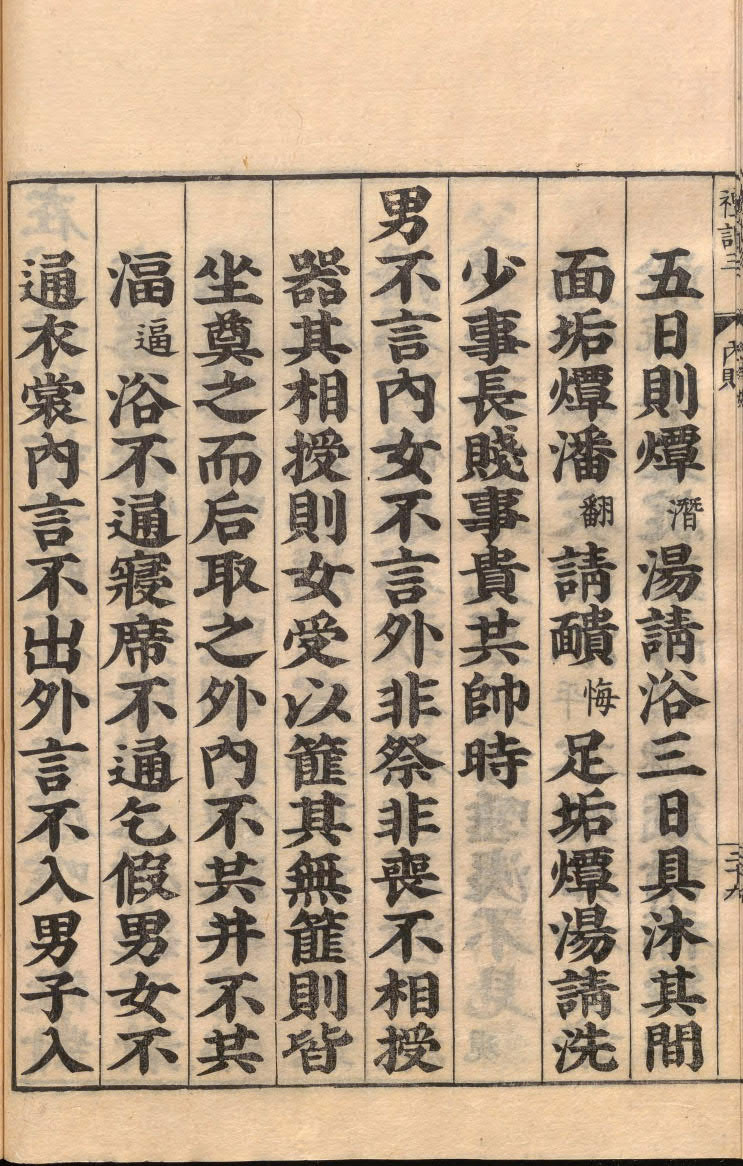 五日則燂潛湯請浴三日具沐其間
面垢燂潘翻請靧悔足垢燂湯請洗
少事長賤事貴共帥時
男不言內女不言外非祭非喪不相授
器其相授則女受以篚其無篚則皆
坐奠之而后取之外內不共井不共
湢逼浴不通寢席不通乞假男女不
通衣裳內言不出外言不入男子入
內則